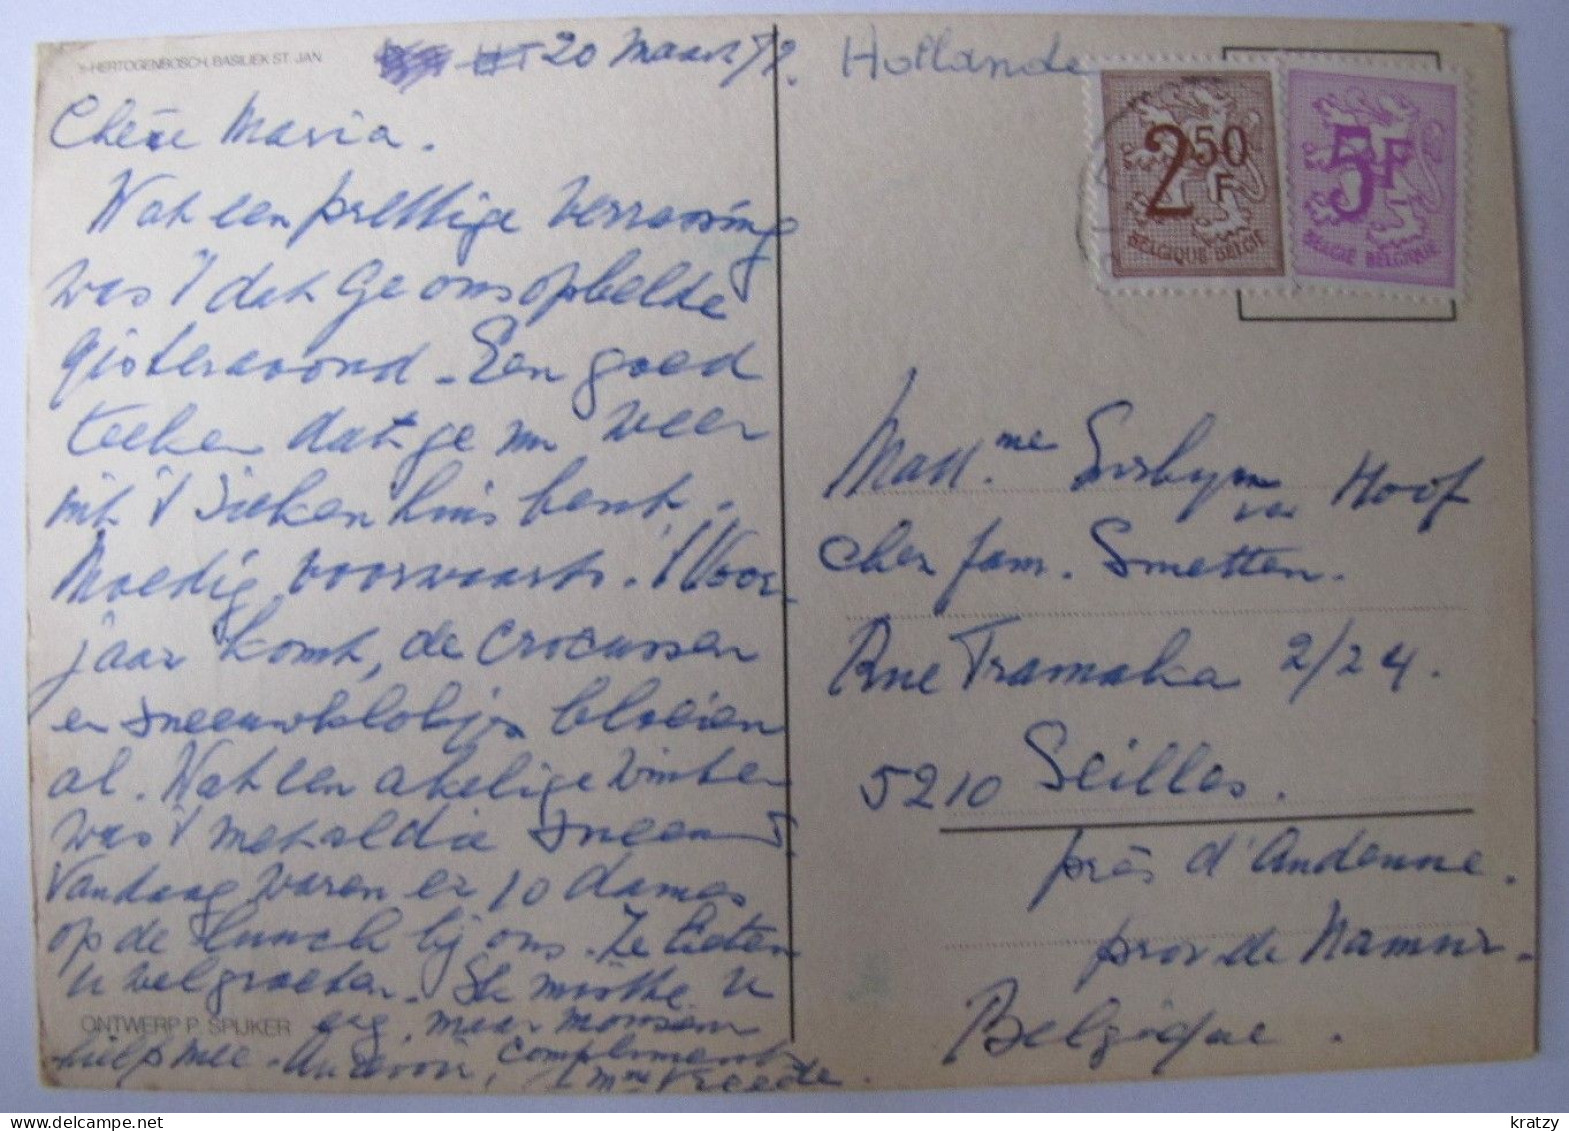 's-HERTOGENBOSCH, BASILIEK ST. JAN
20 Maart 79.
Chère Maria.
Wat een prettige verrassing
was 't dat Ge ons opbelde
gisteravond - Een goed
teeken dat ge nu weer
uit 't ziekenhuis bent.
Moedig voorwaarts. 't Voor-
jaar komt, de crocussen
en sneeuwklokjes bloeien
al. Wat een akelige winter
was 't met al die sneeuw.
Vandaag waren er 10 dames
op de lunch bij ons. Ze lieten
u veel groeten. Ik miste u
erg, maar
hielp mee. Au revoir, Compliments
Mme Vreede.
ONTWERP P. SPIJKER
Hollande
2 50 F
BELGIQUE-BELGIE
5F
BELGIE BELGIQUE
Mad.me Hoof
chez fam. Smetten.
Rue Tramaka 2/24.
5210 Seilles.
près d'Andenne.
prov de Namur.
Belgique.
kratzy